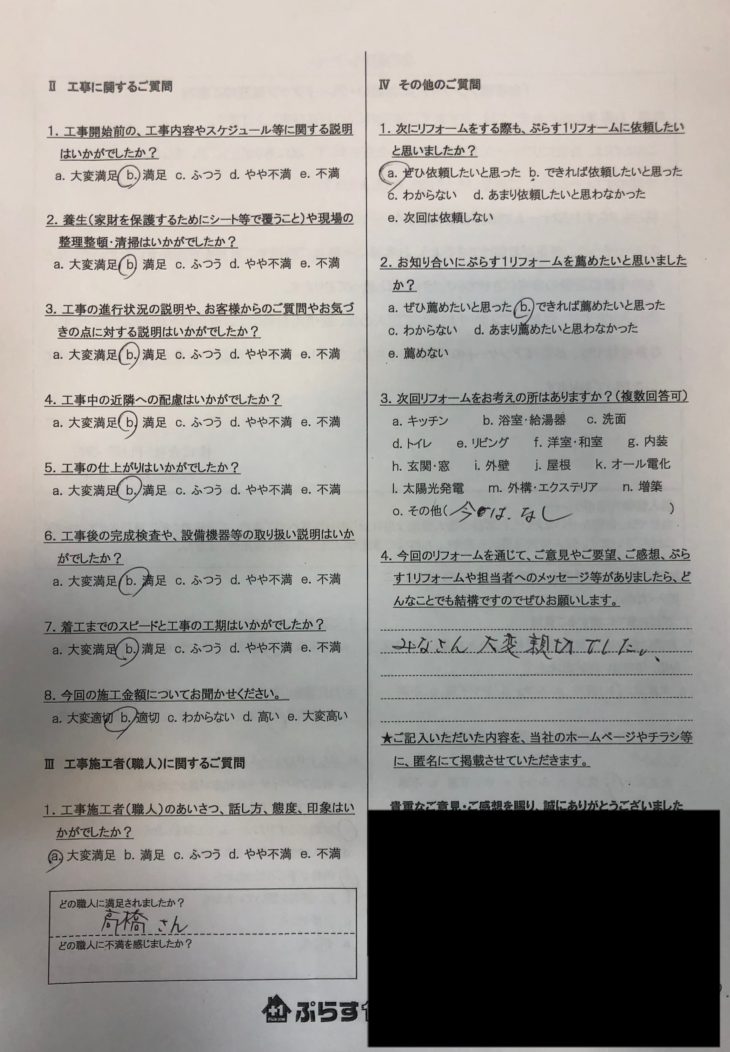 Ⅱ 工事に関するご質問
1. 工事開始前の、工事内容やスケジュール等に関する説明
はいかがでしたか？
a. 大変満足 b. 満足 c. ふつう d. やや不満 e. 不満
2. 養生(家財を保護するためにシート等で覆うこと)や現場の
整理整頓・清掃はいかがでしたか？
a. 大変満足 b. 満足 c. ふつう d. やや不満 e. 不満
3. 工事の進行状況の説明や、お客様からのご質問やお気づ
きの点に対する説明はいかがでしたか？
a. 大変満足 b. 満足 c. ふつう d. やや不満 e. 不満
4. 工事中の近隣への配慮はいかがでしたか？
a. 大変満足 b. 満足 c. ふつう d. やや不満 e. 不満
5. 工事の仕上がりはいかがでしたか？
a. 大変満足 b. 満足 c. ふつう d. やや不満 e. 不満
6. 工事後の完成検査や、設備機器等の取り扱い説明はいか
がでしたか？
a. 大変満足 b. 満足 c. ふつう d. やや不満 e. 不満
7. 着工までのスピードと工事の工期はいかがでしたか？
a. 大変満足 b. 満足 c. ふつう d. やや不満 e. 不満
8. 今回の施工金額についてお聞かせください。
a. 大変適切 b. 適切 c. わからない d. 高い e. 大変高い
Ⅲ 工事施工者(職人)に関するご質問
1. 工事施工者(職人)のあいさつ、話し方、態度、印象はい
かがでしたか？
a. 大変満足 b. 満足 c. ふつう d. やや不満 e. 不満
どの職人に満足されましたか？
高橋さん
どの職人に不満を感じましたか？
Ⅳ その他のご質問
1. 次にリフォームをする際も、ぷらす1リフォームに依頼したい
と思いましたか？
a. ぜひ依頼したいと思った b. できれば依頼したいと思った
c. わからない d. あまり依頼したいと思わなかった
e. 次回は依頼しない
2. お知り合いにぷらす1リフォームを薦めたいと思いました
か？
a. ぜひ薦めたいと思った b. できれば薦めたいと思った
c. わからない d. あまり薦めたいと思わなかった
e. 薦めない
3. 次回リフォームをお考えの所はありますか？(複数回答可)
a. キッチン b. 浴室・給湯器 c. 洗面
d. トイレ e. リビング f. 洋室・和室 g. 内装
h. 玄関・窓 i. 外壁 j. 屋根 k. オール電化
l. 太陽光発電 m. 外構・エクステリア n. 増築
o. その他( 今は、なし )
4. 今回のリフォームを通じて、ご意見やご要望、ご感想、ぷら
す1リフォームや担当者へのメッセージ等がありましたら、ど
んなことでも結構ですのでぜひお願いします。
みなさん 大変親切でした。
★ご記入いただいた内容を、当社のホームページやチラシ等
に、匿名にて掲載させていただきます。
貴重なご意見・ご感想を賜り、誠にありがとうございました
ぷらす